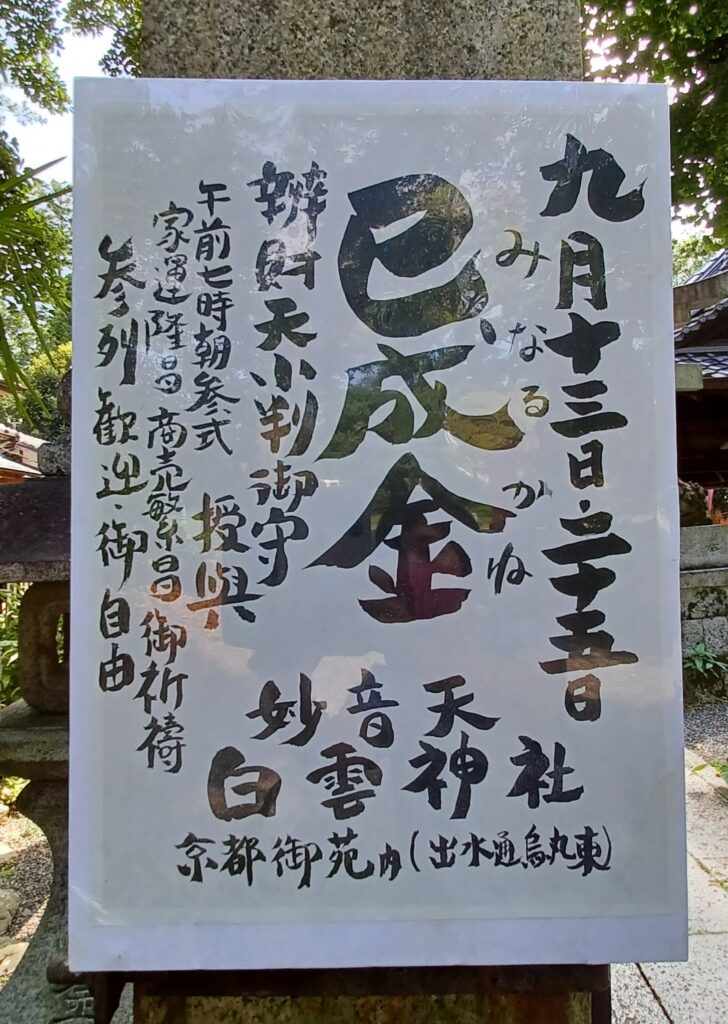 九月十三日・二十五日
みなるかね
巳成金
辨財天小判御守
授與
午前七時朝参式
家運隆昌商売繁昌御祈祷
参列歓迎・御自由
妙音天
白雲神社
京都御苑内(出水通烏丸東)